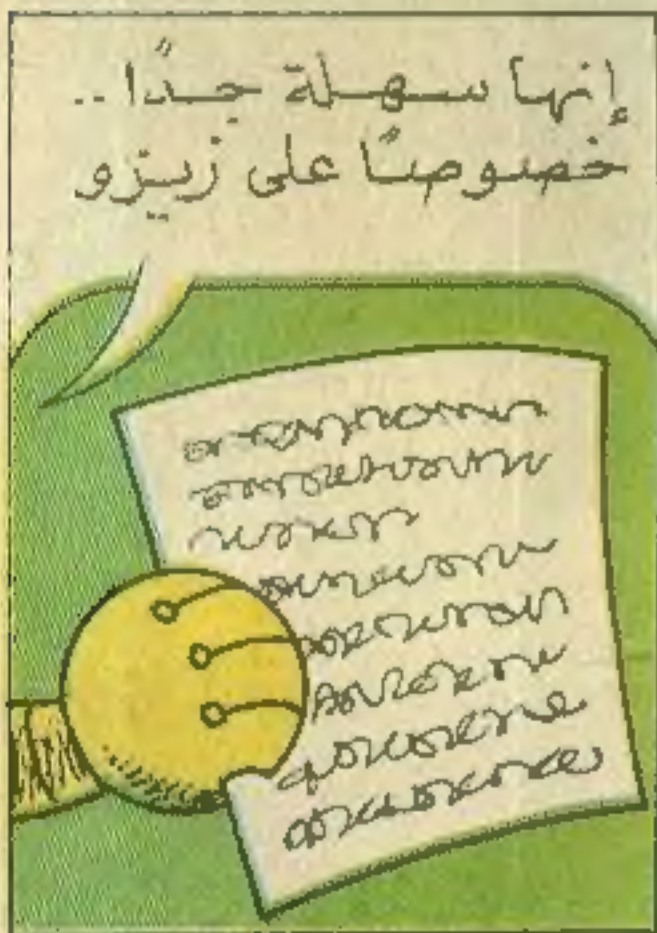 إنها سهلة جدًا..
خصوصًا على زيزو